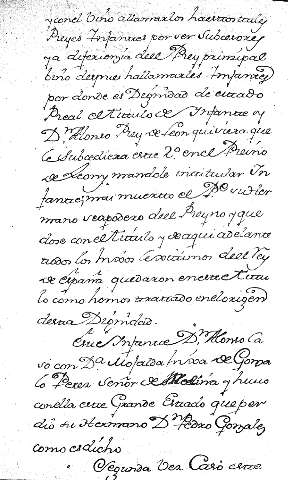 y con el vino a llamarlos haerttoataley
Reyes Infantes por ser Subcesores
y a diferençia de el Rey principal
bino despues ha llamarles Infantes
por donde es Dignidad de estado
Real el titulo de Infante y
Dn Alonso Rey de Leon quisiera que
le Subcediera este 2º en el Reino
de Leon y mandole intitular In
fante; mas muerto el Pe su Her
mano se apodero de el Reyno y que
dose con el titulo y de aqui adelante
todos los hixos lexitimos de el Rey
de españa quedaron en este titu
lo como hemos trattado en el origen
desta Dignidad.
Este Infante Dn Alonso Ca
so con Da Mofalda hixa de Gonza
lo Perez Señor de Molina y huuo
con ella este Grande Estado que per
dio su Hermano Dn Pedro Gonzalez
como es dicho
Segunda Vez Casò este